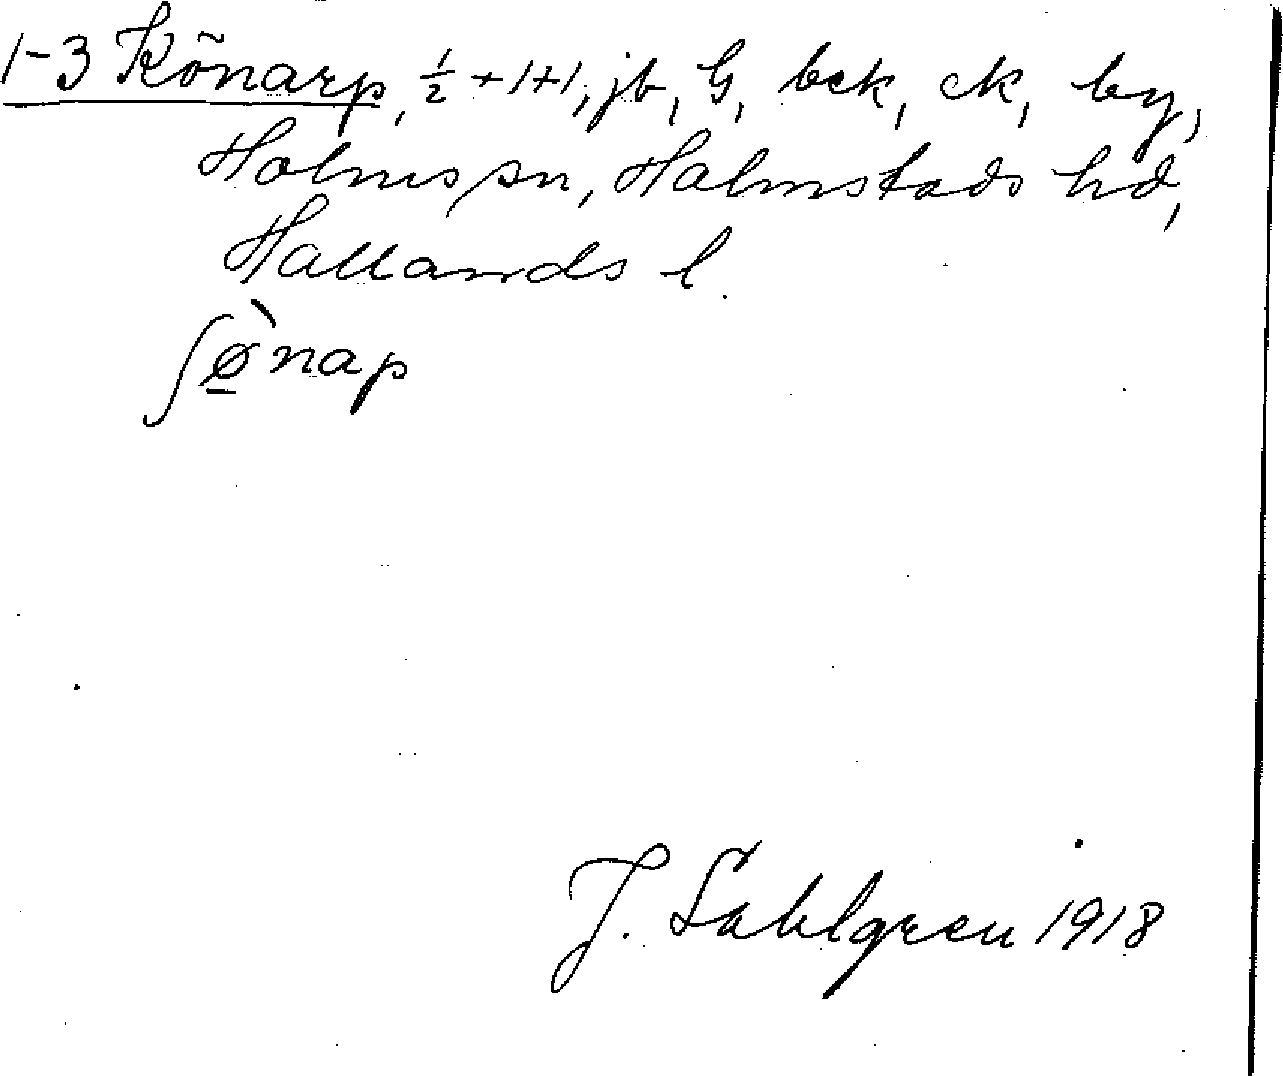 1-3 Könarp, ½ + 1+1, jb, G, bek, ck, by,
Holms sn, Halmstads hd,
Hallands l.
ʃø̲̀nap
J. Sahlgren 1918